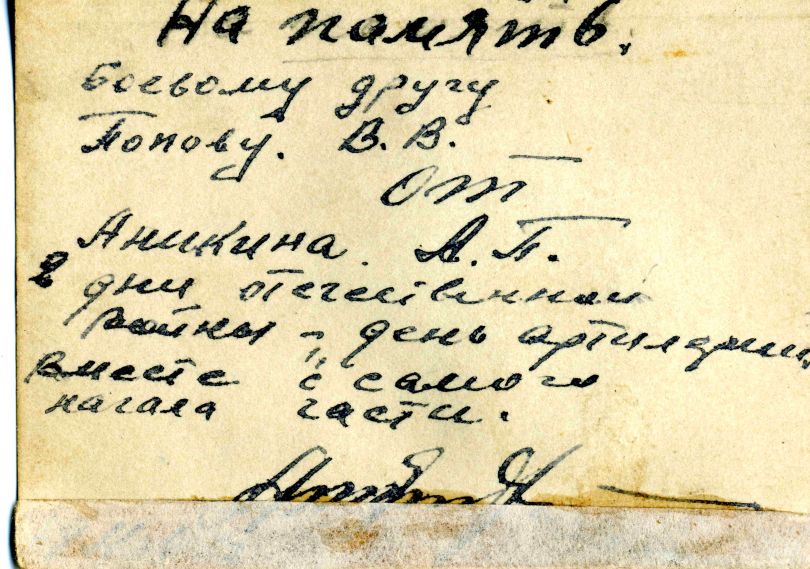 На память.
боевому другу
Попову. В. В.
от
Аникина. А. П.
дни отечественной
войны - день артиларии,
вместе с самого
начала части.